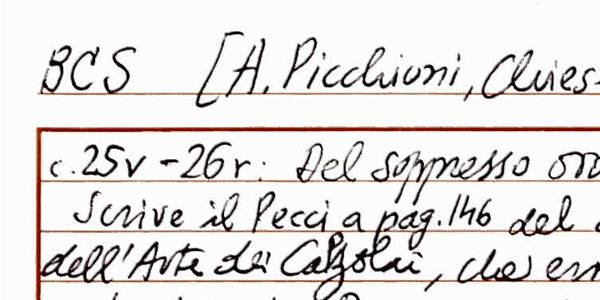 BCS [A. Picchioni, Chies
c. 25v - 26r: Del soppresso
Scrive il Pecci a pag. 146 del
dell'Arte dei Calzolai, che